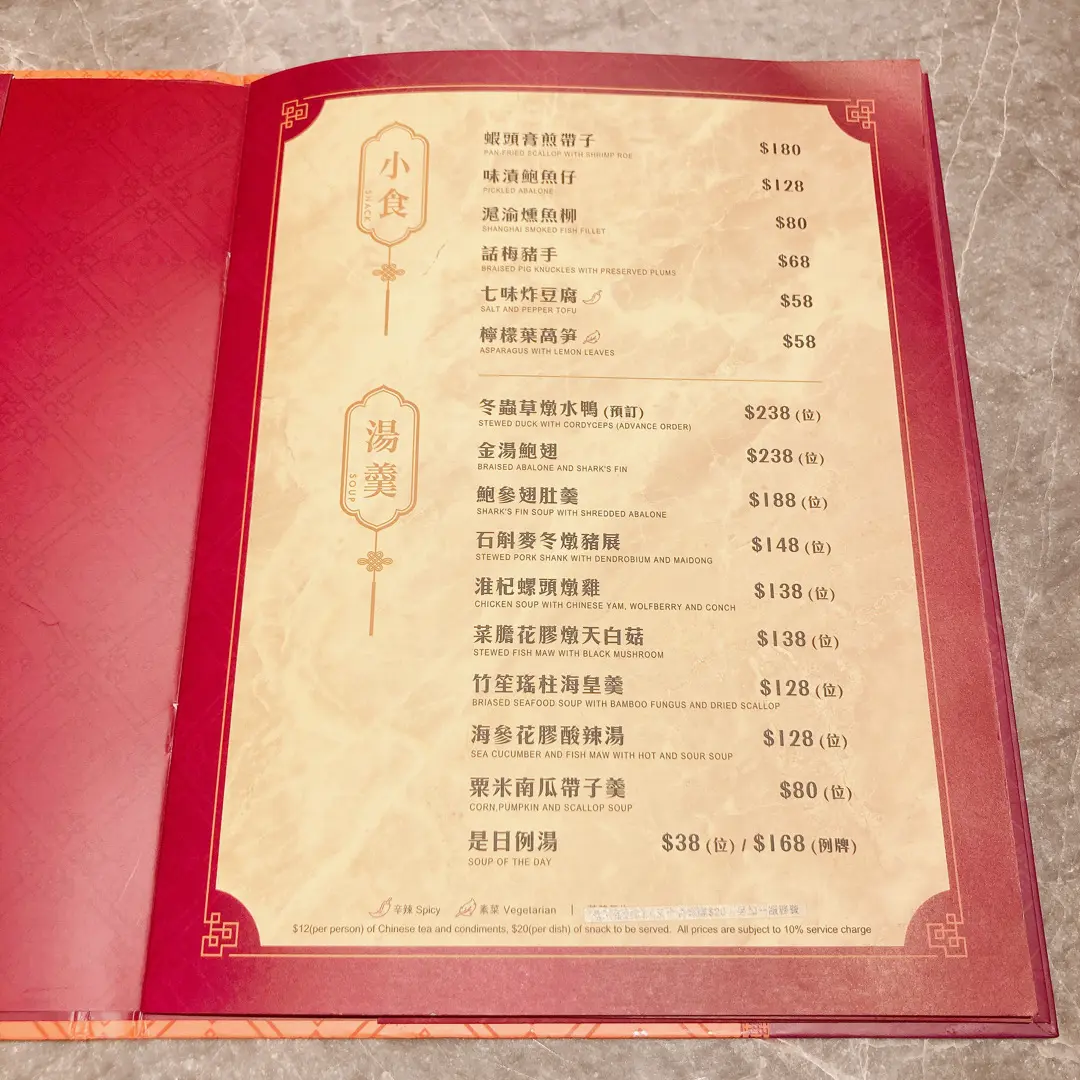 小食
SNACK
蝦頭膏煎帶子 $180
PAN-FRIED SCALLOP WITH SHRIMP ROE
味漬鮑魚仔 $128
PICKLED ABALONE
滬渝燻魚柳 $80
SHANGHAI SMOKED FISH FILLET
話梅豬手 $68
BRAISED PIG KNUCKLES WITH PRESERVED PLUMS
七味炸豆腐 $58
SALT AND PEPPER TOFU
檸檬葉萵笋 $58
ASPARAGUS WITH LEMON LEAVES
湯羹
SOUP
冬蟲草燉水鴨 (預訂) $238 (位)
STEWED DUCK WITH CORDYCEPS (ADVANCE ORDER)
金湯鮑翅 $238 (位)
BRAISED ABALONE AND SHARK'S FIN
鮑參翅肚羹 $188 (位)
SHARK'S FIN SOUP WITH SHREDDED ABALONE
石斛麥冬燉豬展 $148 (位)
STEWED PORK SHANK WITH DENDROBIUM AND MAIDONG
淮杞螺頭燉雞 $138 (位)
CHICKEN SOUP WITH CHINESE YAM, WOLFBERRY AND CONCH
菜膽花膠燉天白菇 $138 (位)
STEWED FISH MAW WITH BLACK MUSHROOM
竹笙瑤柱海皇羹 $128 (位)
BRIASED SEAFOOD SOUP WITH BAMBOO FUNGUS AND DRIED SCALLOP
海參花膠酸辣湯 $128 (位)
SEA CUCUMBER AND FISH MAW WITH HOT AND SOUR SOUP
粟米南瓜帶子羹 $80 (位)
CORN,PUMPKIN AND SCALLOP SOUP
是日例湯 $38 (位) / $168 (例牌)
SOUP OF THE DAY
辛辣 Spicy 素菜 Vegetarian |
$12(per person) of Chinese tea and condiments, $20(per dish) of snack to be served. All prices are subject to 10% service charge